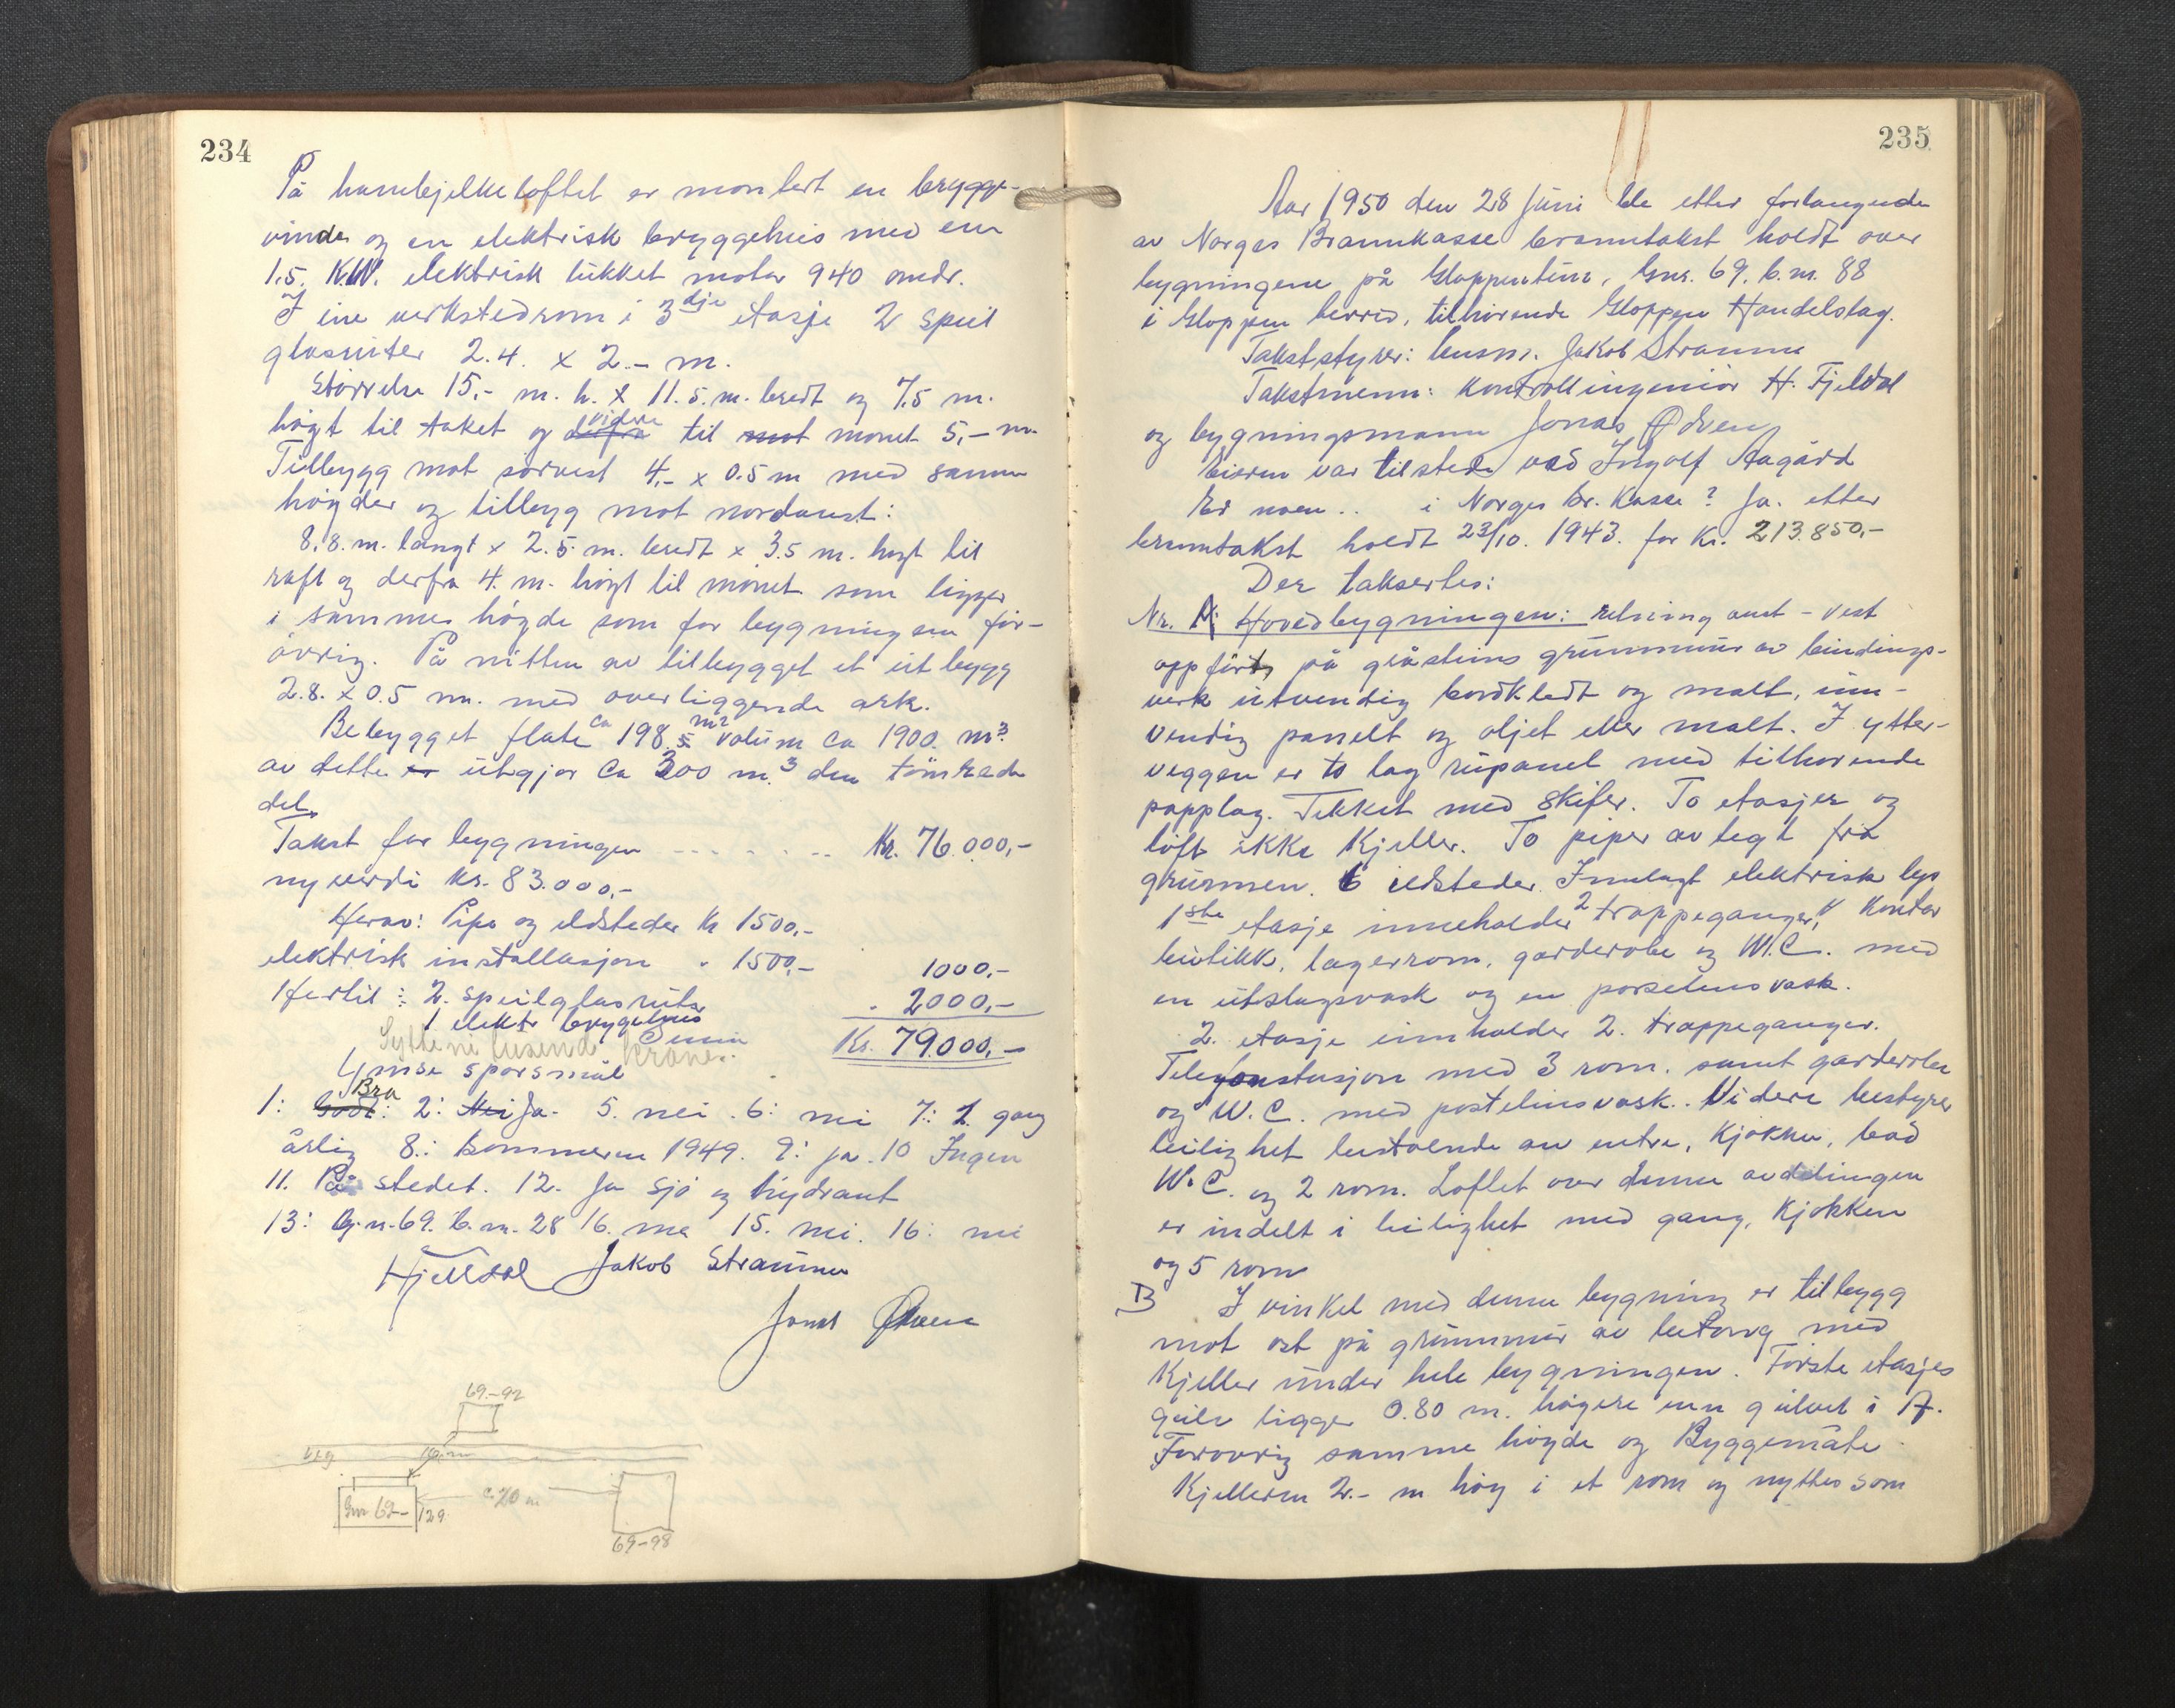 234
På hanebjelkeloftet er montert en brygge-
vinde og en elektrisk bryggeheis med en
1.5. K.W. elektrisk lukket motor 940 omdr.
I ene verkstedrom i 3dje etasje 2 speil
glasruter 2.4. x 2.- m.
Størrelse 15,- m. l. x 11.5. m. bredt og 7.5 m.
høgt til taket og derfra videre til mot mønet 5,- m.
Tilbygg mot sørvest 4,- x 0.5 m med samme
høgder og tilbygg mot nordaust:
8.8. m. langt x 2.5 m. bredt x 3.5 m. høgt til
raft og derfra 4. m. høgt til mønet som ligger
i samme høgde som for bygningen for-
øvrig. På mitten av tilbygget et utbygg
2.8. x 0.5 m. med overliggende ark.
Bebygget flate ca 198 m2 volum ca 1900 m3.
av dette er utgjør ca 300 m.3 den tømrede
del.
Takst for bygningen - - - - - - - Kr. 76.000,-
nyverdi kr. 83.000,-
Herav: Pipe og ildsteder Kr 1500,-
elektrisk installasjon " 1500,-
Hertil: 2. speilglasruter 1000,-
1 elektr bryggeheis " 2000,-
Sum Kr. 79.000,-
Syttini tusend kroner.
Ymse spørsmål
1: Godt: Bra 2: Nei Ja. 5. nei. 6: nei 7: 1. gang
årlig 8.: Sommeren 1949. 9: ja. 10 Ingen
11. På stedet. 12. Ja sjø og hydrant
13: G.n. 69. b.n. 28 16. nei 15. nei. 16: nei
Hjelldal Jakob Straume
Jonas Ødven
69-92
veg
10. m
Gnr 69- 129
c. 20 m
69-98
235
Aar 1950 den 28 Juni ble etter forlangende
av Norges Brannkasse branntakst holdt over
bygningene på Gloppentun, Gnr. 69. b.nr. 88
i Gloppen herred, tilhørende Gloppen Handelslag.
Takststyrer: lensm. Jakob Straume
Takstmenn: Kontrollingeniør H. Fjeldal
og bygningsmann Jonas Ødven
Eieren var tilstede ved Ingolf Aagård
Er noen .. i Norges br. Kasse? Ja. etter
branntakst holdt 23/10. 1943. for Kr. 213.850,-
Der taksertes:
Nr. A: Hovedbygningen: retning aust - vest
oppført på gråsteins grunnmur av bindings-
verk utvendig bordkledt og malt, inn-
vendig panelt og oljet eller malt. I ytter-
veggen er to lag rupanel med tilhørende
papplag. Tekket med skifer. To etasjer og
loft ikke Kjeller. To piper av tegl fra
grunnen. 6 ildsteder. Innlagt elektrisk lys
1ste etasje inneholder 2 trappeganger, Kontor
butikk, lagerrom, garderobe og W.C. med
en utslagsvask og en porselensvask.
2. etasje innholder 2. trappeganger.
Telefonstasjon med 3 rom. samt garderobe
og W.C. med postelinsvask. Videre bestyrer
leilighet bestående av entre, Kjøkken, bad
W.C. og 2 rom. Loftet over denne avdelingen
er indelt i leilighet med gang, Kjøkken
og 5 rom
B I vinkel med denne bygning er tilbygg
mot øst på grunnmur av betong med
Kjeller under hele bygningen. Første etasjes
gulv ligger 0.80 m. høgere enn gulvet i A.
Forøvrig samme høyde og Byggemåte
Kjelleren 2.- m høg i et rom og nyttes som